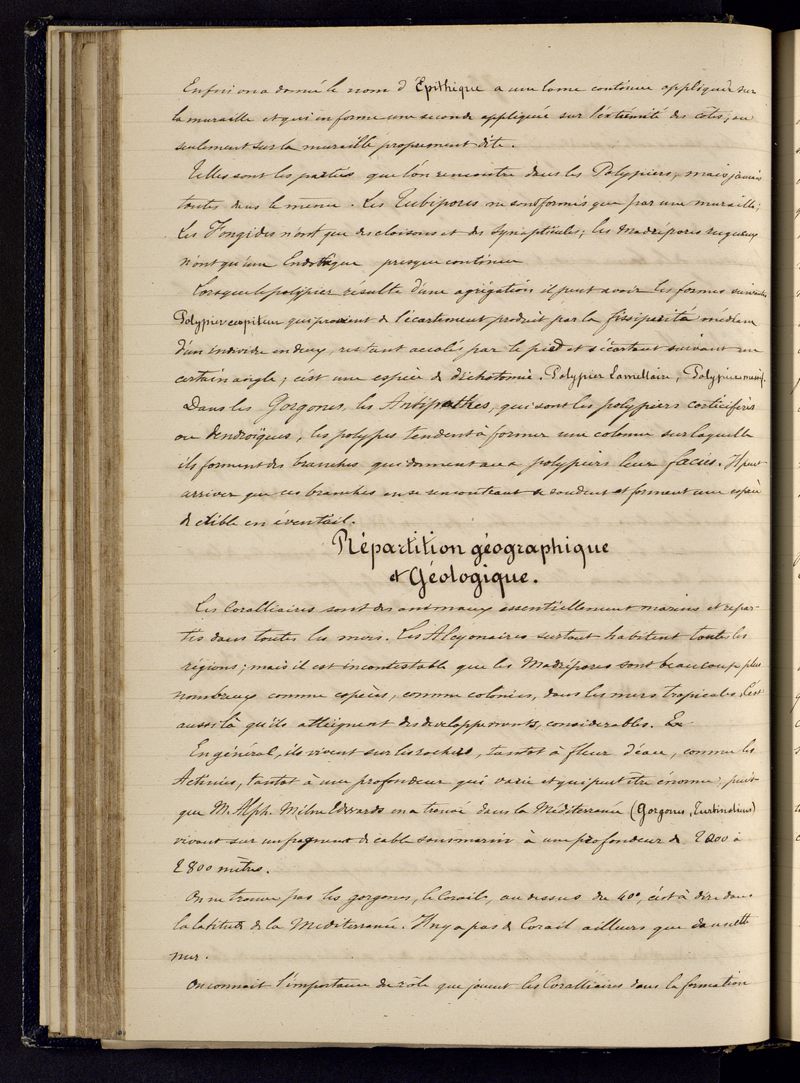 Enfin on a donné le nom d'Épithique a une lame continue appliquée sur
la muraille et qui en forme une seconde appliquée sur l'extrémité des côtes, ou
seulement sur la muraille proprement dite.
Telles sont les parties que l'on rencontre dans les Polypiers, mais jamais
toutes dans le même. Les Tubipores ne sont formés que par une muraille;
Les Fongides n'ont que des cloisons et des Synapticules; les madrépores rugueux
n'ont qu'une Endothèque presque continue
Lorsque le polypier résulte d'une agrégation il peut avoir les formes suivantes
Polypier cespiteux qui provient de l'écartement produit par la fissiparité médiane
d'un individu en deux, restant accolé par le pied et s'écartant suivant un
certain angle; c'est une espèce de dichotomie. Polypier Lamellaire, Polypier massif.
Dans les Gorgones, les Antipathes, qui sont les polypiers corticifères
ou dendroïques, les polypes tendent à former une colonne sur laquelle
ils forment des branches qui donnent aux polypiers leur facies. Il peut
arriver que ces branches en se rencontrant se soudent et forment une espèce
de crible en éventail.
Répartition géographique
et Géologique.
Les Coralliaires sont des animaux essentiellement marins et répar-
tis dans toutes les mers. Les Alcyonaires surtout habitent toutes les
régions; mais il est incontestable que les Madrépores sont beaucoup plus
nombreux comme espèces, comme colonies, dans les mers tropicales. C'est
aussi là qu'ils atteignent des développements considérables. En
En général, ils vivent sur les rochers, tantot à fleur d'eau, comme les
Actinies, tantot à une profondeur qui varie et qui peut être énorme, puis-
que M. Alph. Milne Edwards en a trouvé dans la Méditerranée (Gorgones, Turbinolines)
vivant sur un fragment de cable sousmarin à une profondeur de 2200 à
2800 mètres.
On ne trouve pas les gorgones, le Corail, au dessus du 40°, c'est à dire dans
la latitude de la Méditerranée. Il n'y a pas de Corail ailleurs que dans cette
mer.
On connait l'importance du rôle que jouent les Coralliaires dans la formation